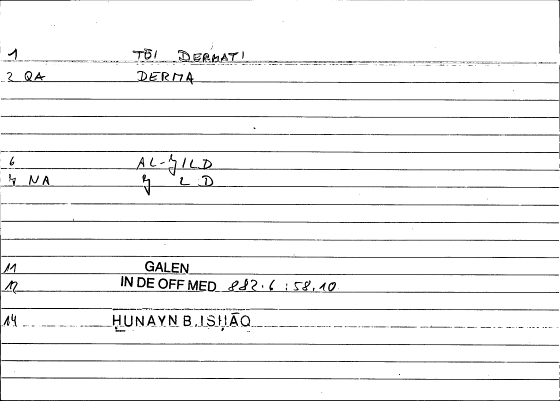 1 TŌI DERMATI
2 QA DERMA
6 AL-ȜILD
7 NA Ȝ L D
11 GALEN
12 IN DE OFF MED 882.6 : 58.10
14 ḤUNAYN B. ISḤĀQ